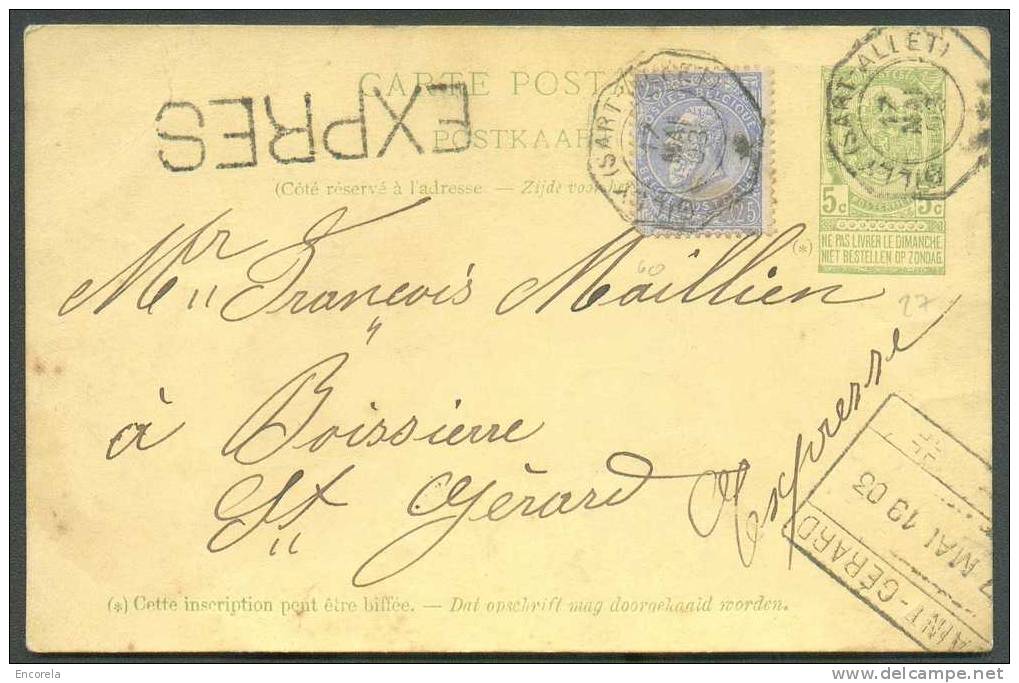 CARTE POST
POSTKAAR
EXPRES
(Côté réservé à l'adresse. — Zijde voor he
25
BELGIQUE
25
GILLY (SART-ALLET)
17
MAI
03
GILLY (SART-ALLET)
17
MAI
03
5c 5c
(*) NE PAS LIVRER LE DIMANCHE
NIET BESTELLEN OP ZONDAG
60
27
Mr François Maillien
à Boissierre
St Gérard
Expresse
AINT-GÉRARD
7 MAI 1903
(*) Cette inscription peut être biffée. — Dat opschrift mag doorgehaald worden.
Encorela
www.delcampe.net